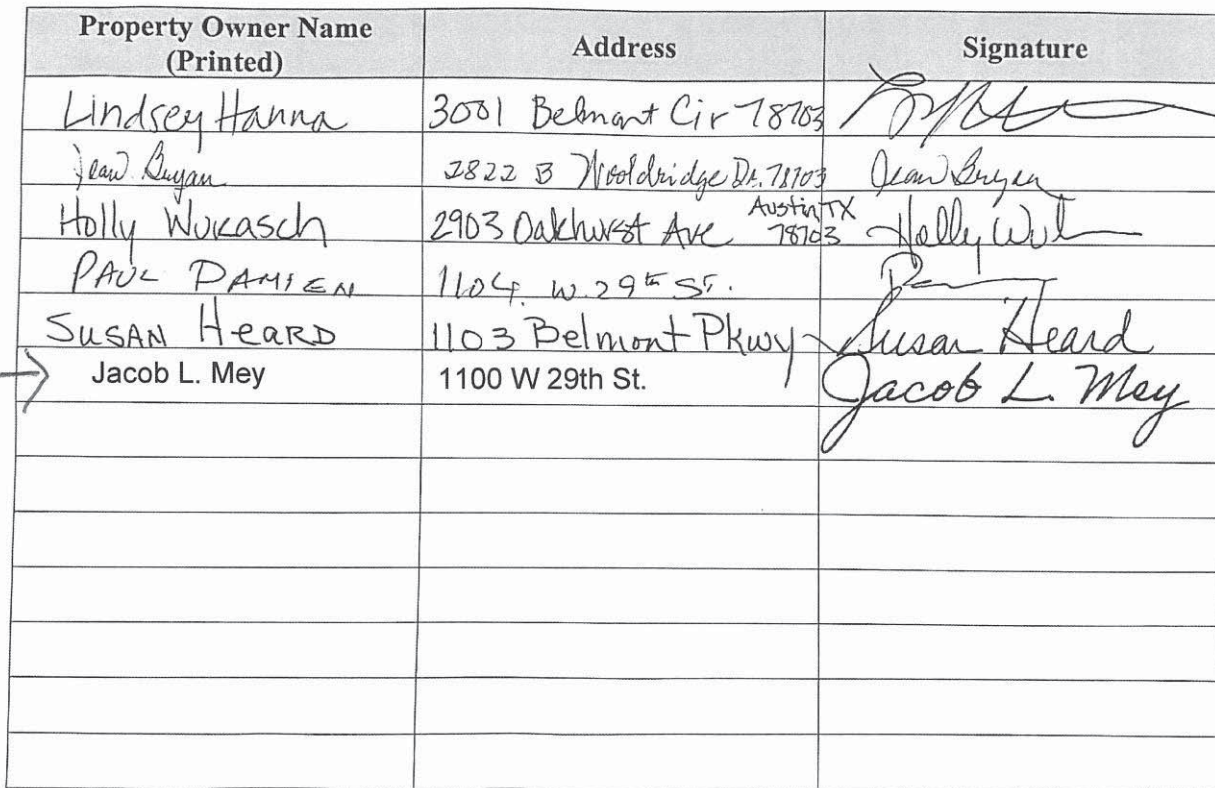 Property Owner Name (Printed) Address Signature
Lindsey Hanna 3001 Belmont Cir 78703
Jean Bryan 2822 B Wooldridge Dr. 78703 Jean Bryan
Holly Wukasch 2903 Oakhurst Ave Austin TX 78703 Holly
PAUL DAMIEN 1104 W. 29th St.
SUSAN HEARD 1103 Belmont Pkwy Susan Heard
Jacob L. Mey 1100 W 29th St. Jacob L. Mey